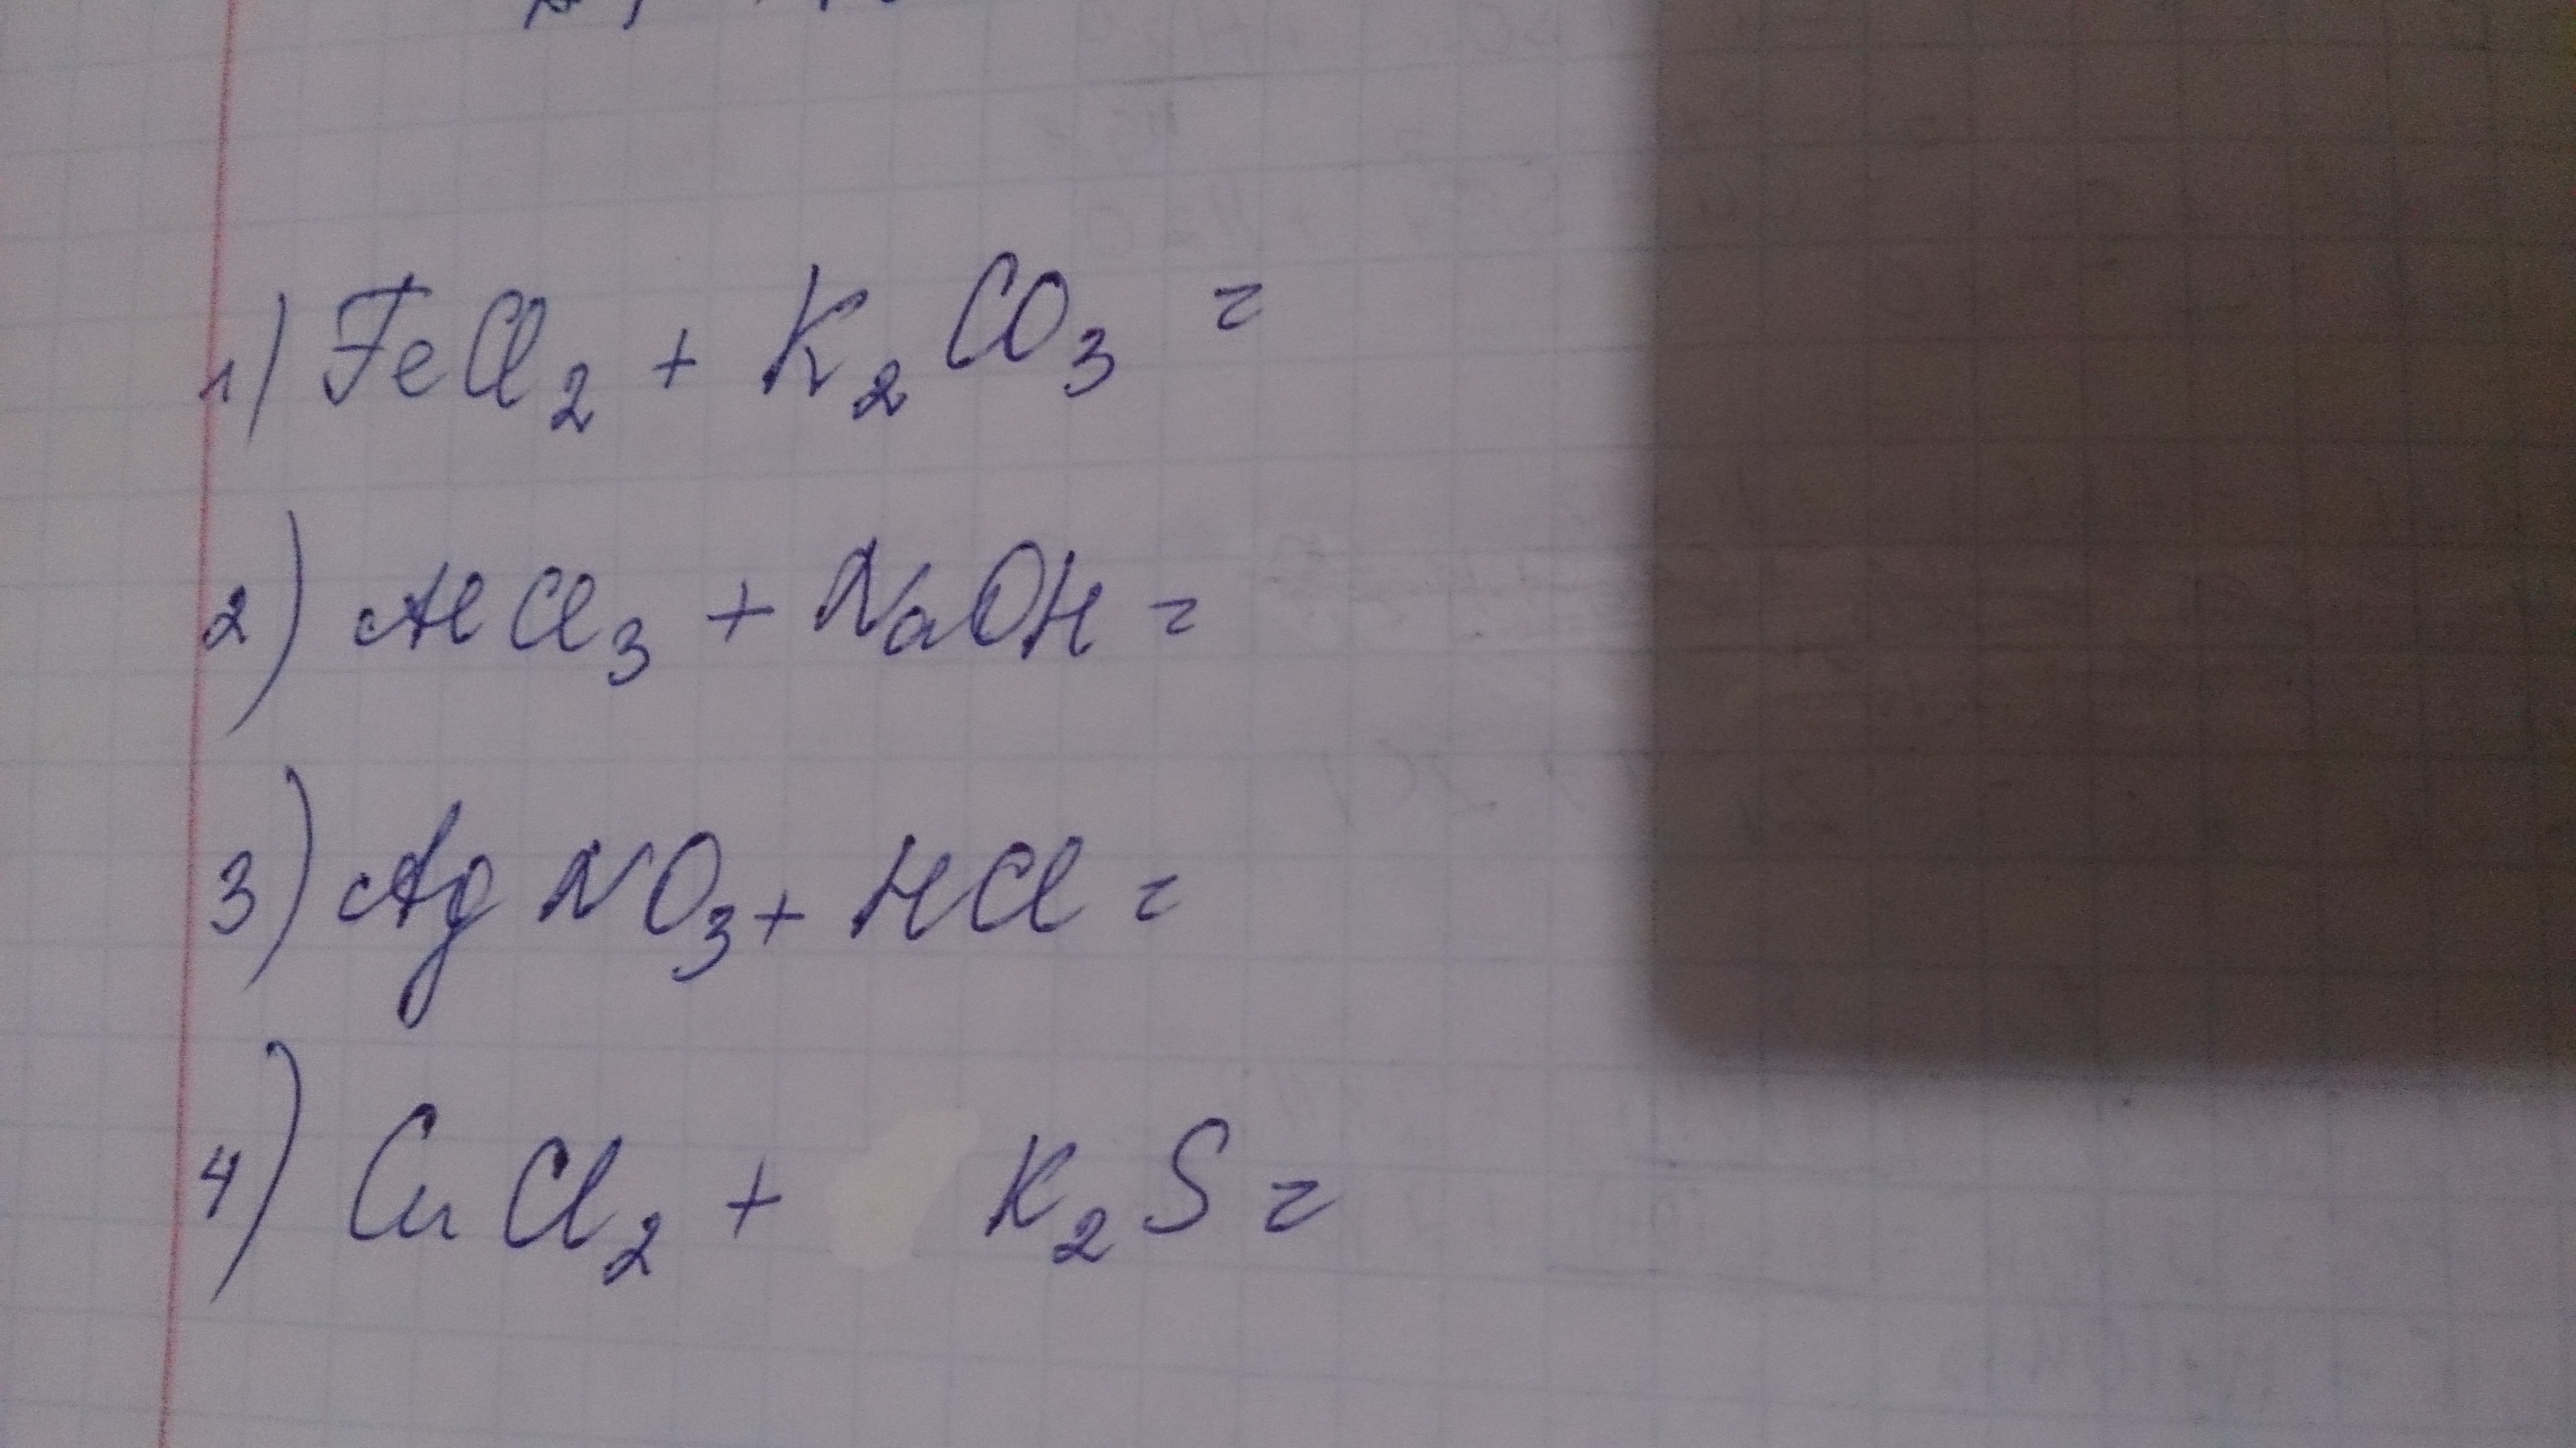 1) FeCl₂ + K₂CO₃ =
2) AlCl₃ + NaOH =
3) AgNO₃ + HCl =
4) CuCl₂ + K₂S =